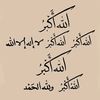 الله أكبر
الله أكبر الله أكبر لا إله إلا الله
الله أكبر
الله أكبر ولله الحمد